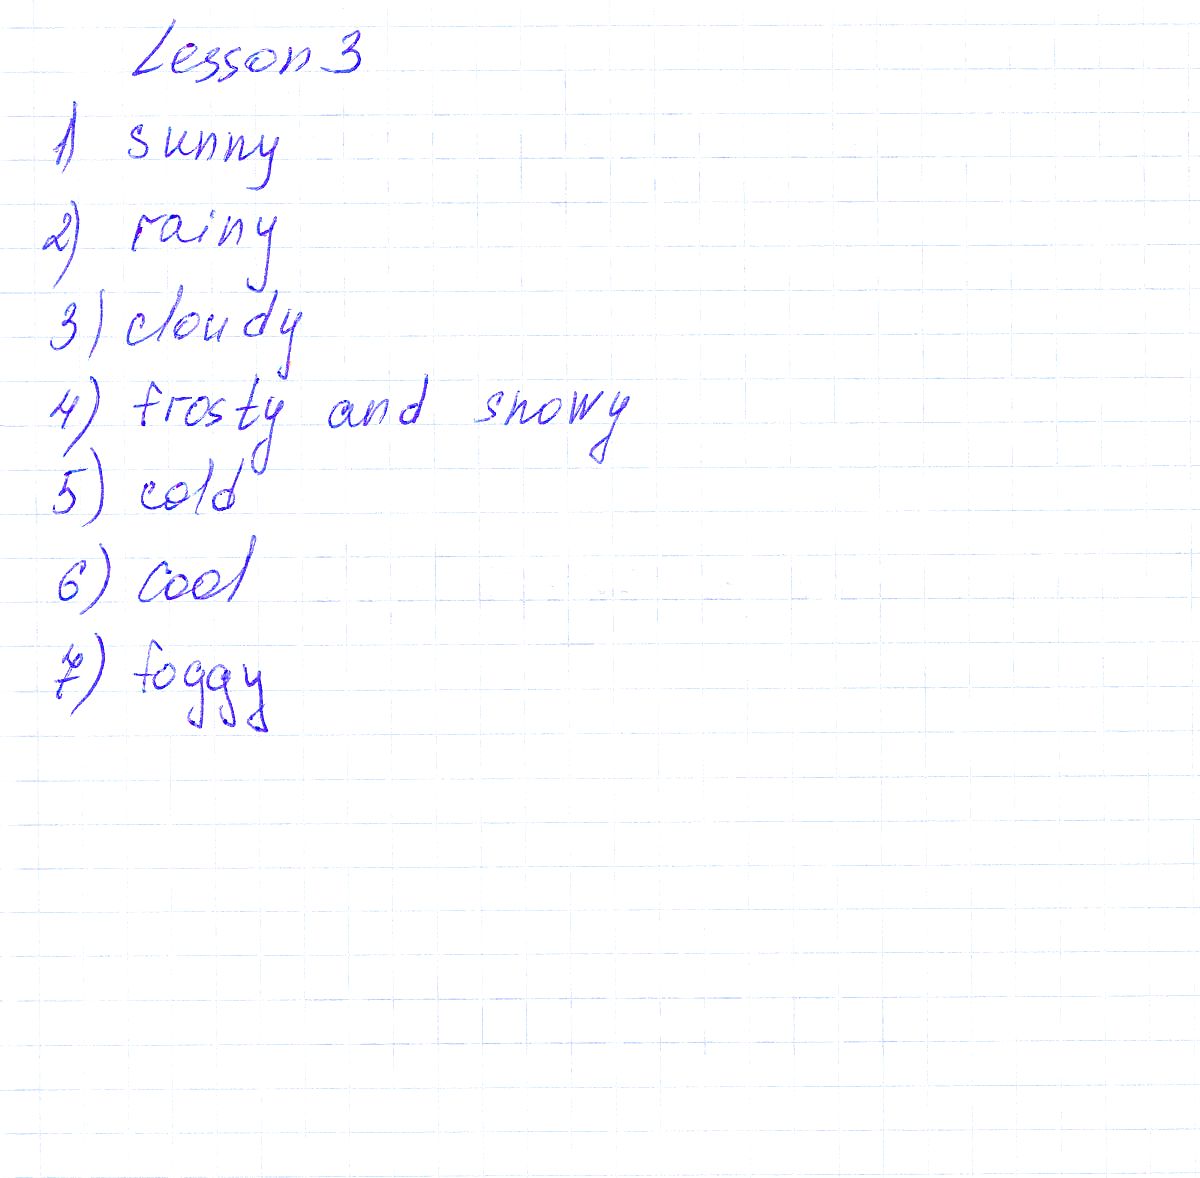 Lesson 3
1) sunny
2) rainy
3) cloudy
4) frosty and snowy
5) cold
6) cool
7) foggy